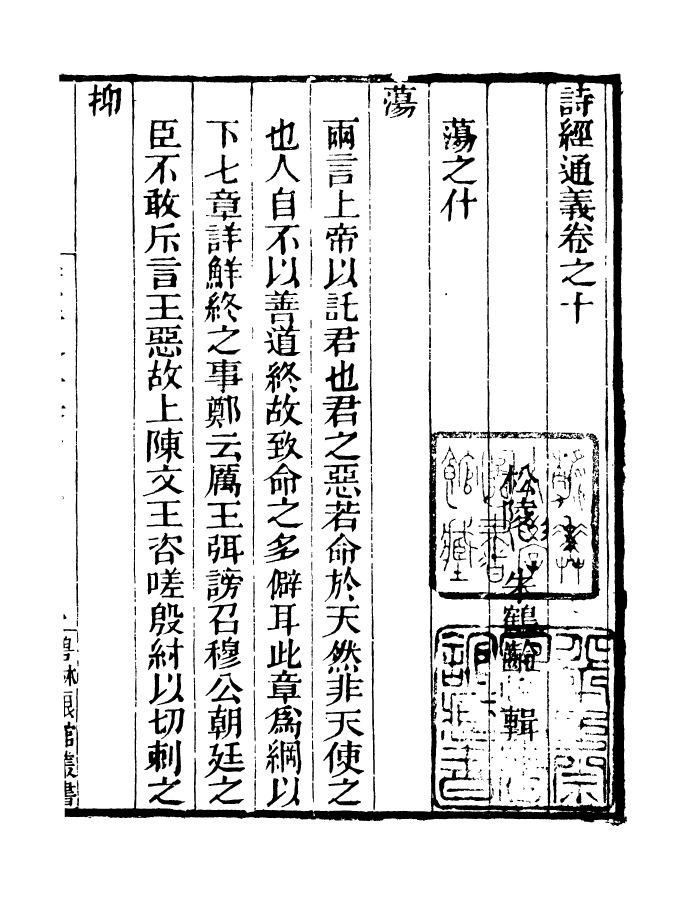 詩經通義卷之十
松陵 朱鶴齡 輯
蕩之什
蕩
兩言上帝以託君也君之惡若命於天然非天使之
也人自不以善道終故致命之多僻耳此章爲綱以
下七章詳鮮終之事鄭云厲王弭謗召穆公朝廷之
臣不敢斥言王惡故上陳文王咨嗟殷紂以切刺之
抑
館叢書